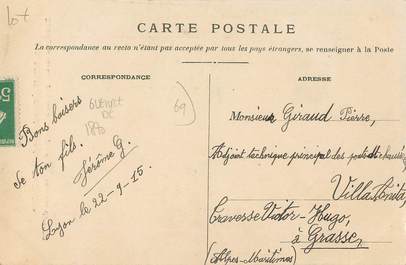 lot
CARTE POSTALE
La correspondance au recto n'étant pas acceptée par tous les pays étrangers, se renseigner à la Poste
CORRESPONDANCE
ADRESSE
5
Bons baisers
de ton fils.
Jérôme G.
Lyon le 22-9-15.
GUERRE
DE
1870
69
Monsieur Giraud Pierre,
Adjoint technique principal des ponts et chaussées
Villa Anita,
Traverse Victor-Hugo,
à Grasse,
(Alpes-Maritimes)